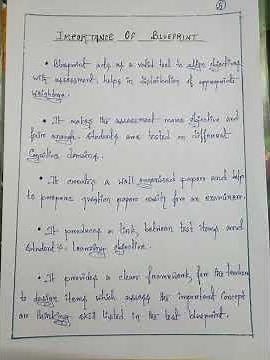 IMPORTANCE OF BLUEPRINT
• Blueprint acts as a valid tool to align objectives
with assessment, helps in distribution of appropriate
weightage.
• It makes the assessment more objective and
fair enough. Students are tested on different
Cognitive domains.
• It creates a well organised papers and help
to prepare question papers easily for an examiner.
• It produces a link between test items and
student's learning objective.
• It provides a clear framework, for the teachers
to design items which assess the important concept
on thinking skill listed in the test blueprint.